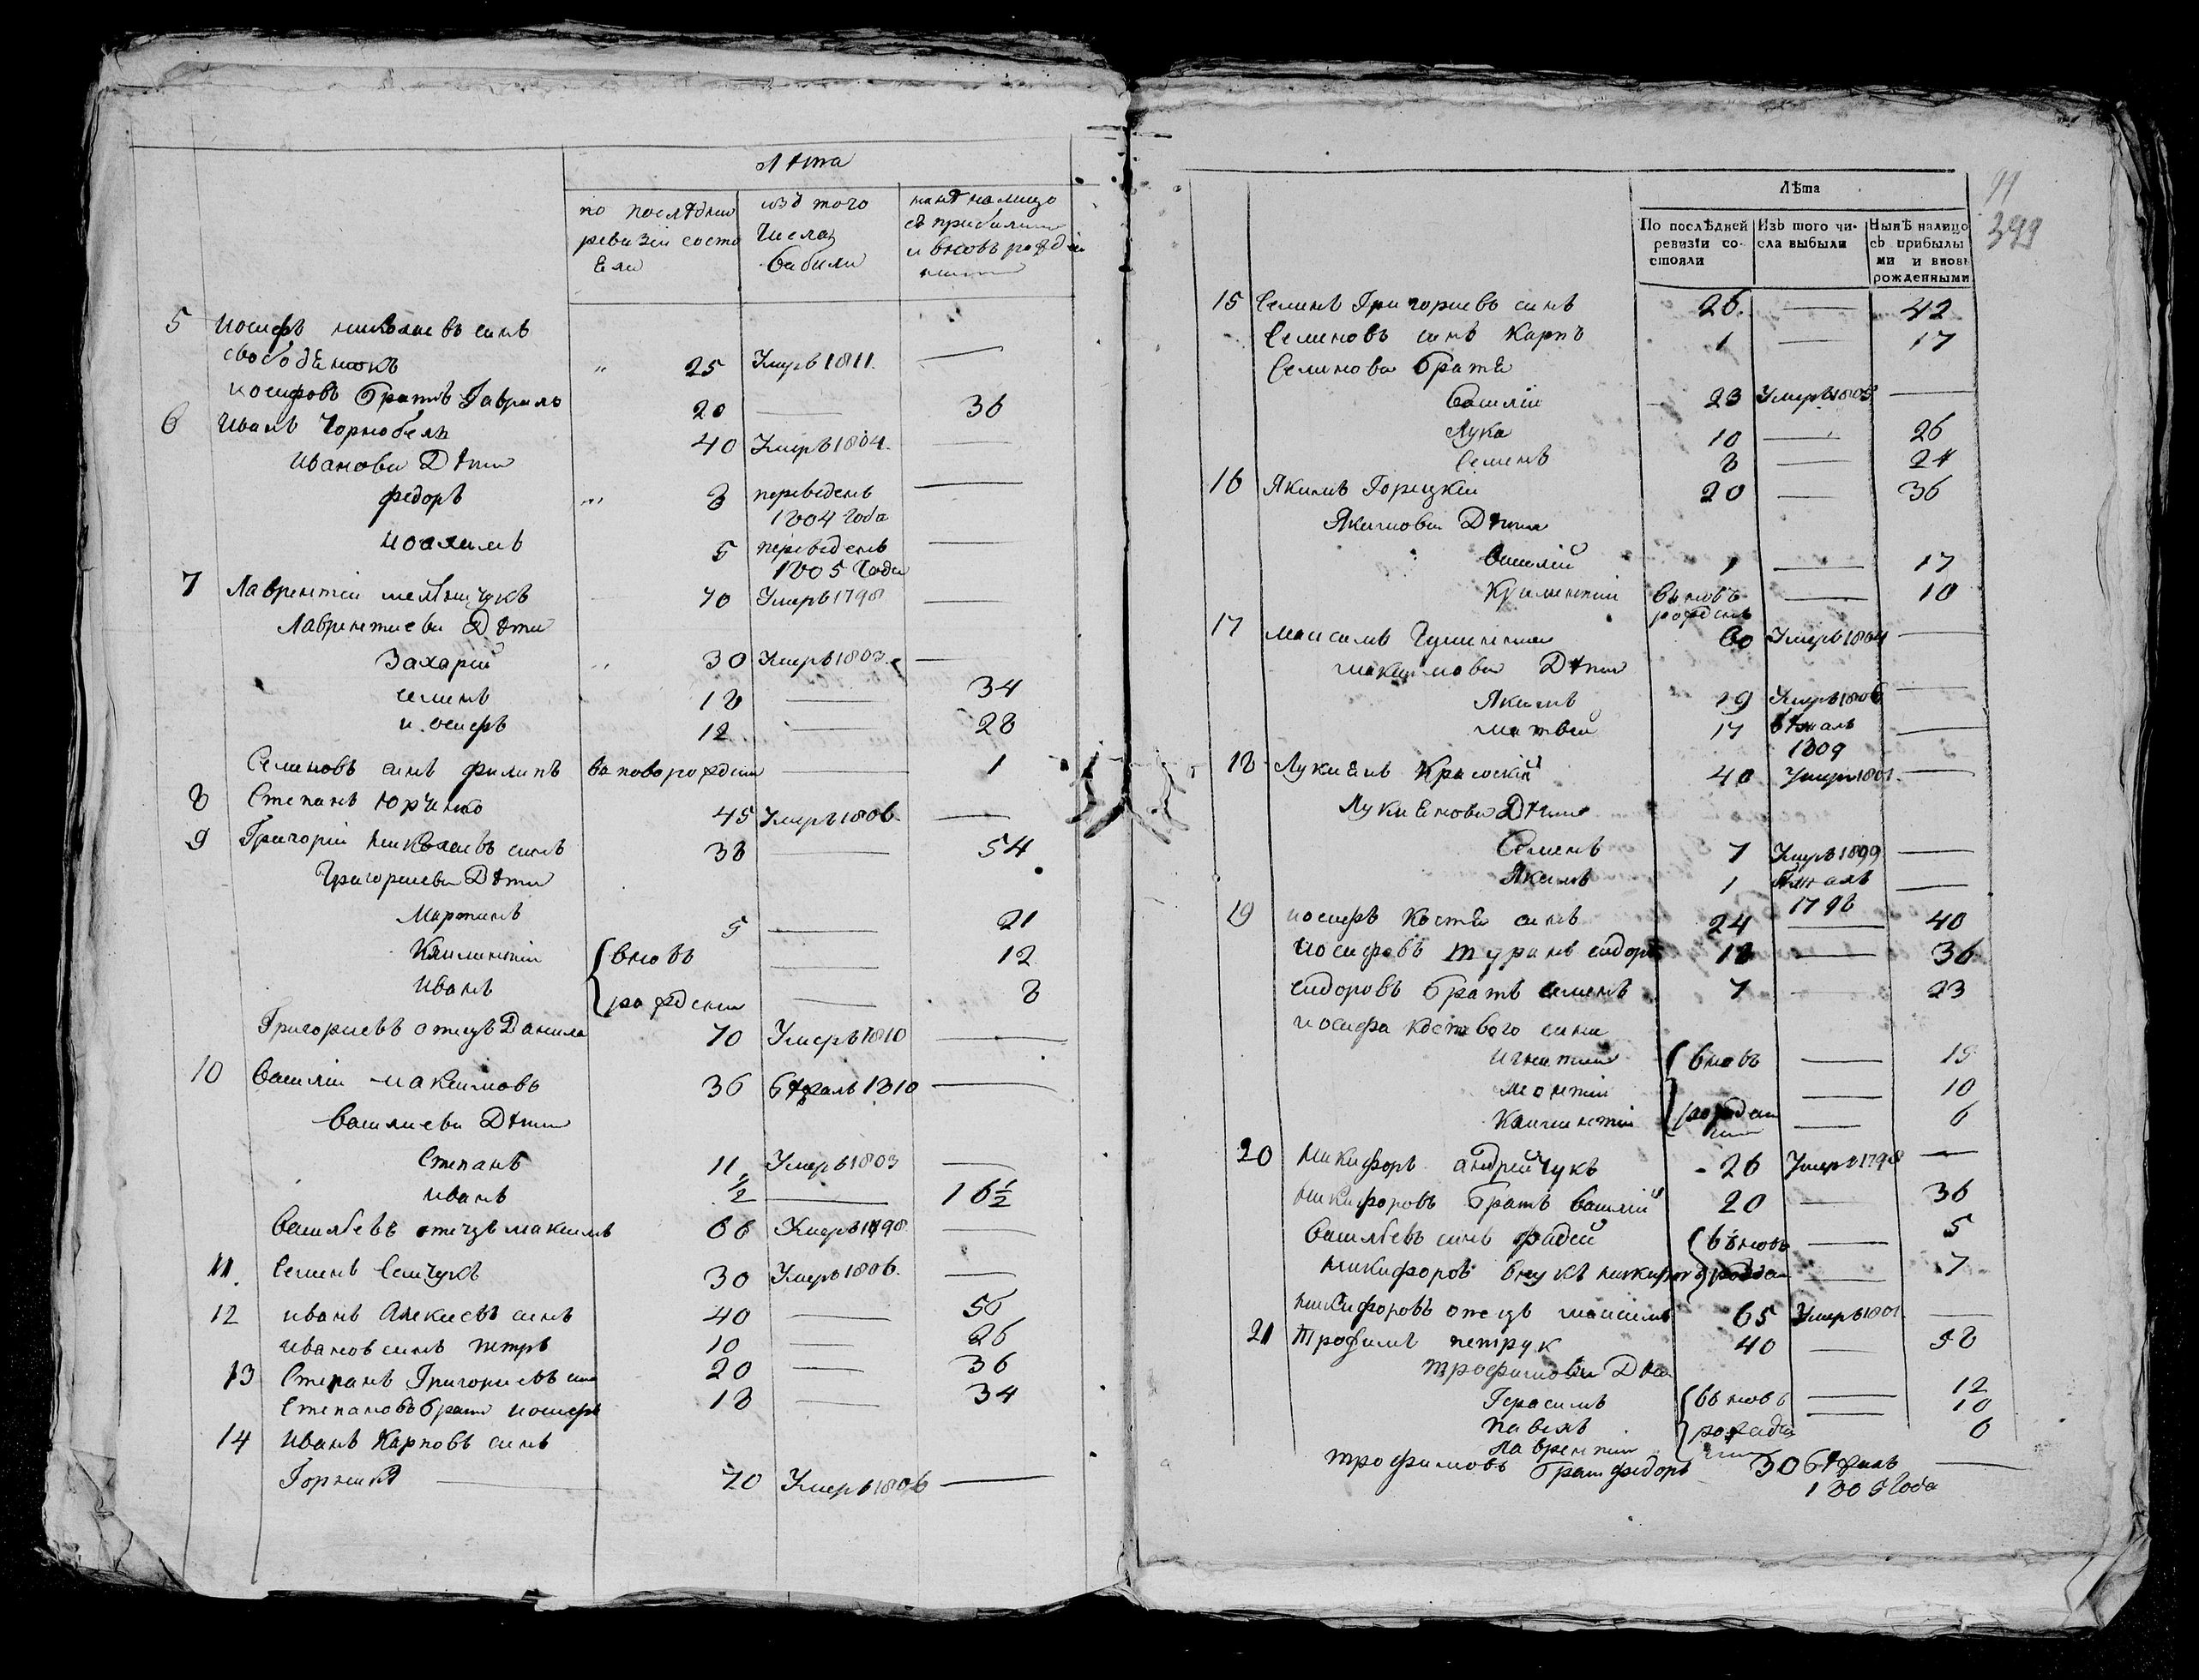 Лѣта
по послѣднеи ревизіи состо Ели
изъ того Числа вибили
налицо съ прибилим и вновь рожден
5 иосифъ николаевъ синъ
свободЕнюкъ 25 Умеръ 1811. —
иосифовъ братъ Гаврило 20 — 36
6 Иванъ Чорнобель 40 Умеръ 1804. —
Иванови Дѣти
федоръ 8 переведенъ 1804 года —
иоахимъ 5 переведенъ 1805 года —
7 Лаврентіи мелничукъ 70 Умеръ 1798 —
Лаврентиеви Дѣти
Захарій 30 Умеръ 1803. —
семенъ 18 — 34
иосифъ 12 — 28
Семеновъ синъ филипъ — 1
8 Степанъ Юрченко 45 Умеръ 1806. —
9 Григоріи николаевъ синъ 38 — 54
Григориеви Дѣти
Мартинъ 5 — 21
Климентіи вновь — 12
Иванъ рожденни — 8
Григориевъ отецъ Данила 70 Умеръ 1810 —
10 Василіи максимовъ 36 бѣжалъ 1810 —
Василиеви Дѣти
Степанъ 11 Умеръ 1803 —
иванъ 1/2 — 16 1/2
Василѣевъ отецъ максимъ 66 Умеръ 1798 —
11. Семенъ Семчукъ 30 Умеръ 1806. —
12 иванъ Алексиевъ синъ 40 — 56
ивановъ синъ петръ 10 — 26
13 Степанъ Григориевъ син 20 — 36
Степановъ братъ иосифъ 18 — 34
14 Иванъ Карповъ синъ
70 Умеръ 1806 —
99
399
Лѣта
По послѣдней ревизіи состояли
Изъ того числа выбыли
Нынѣ налицо съ прибылыми и вновь рожденными
15 Семенъ Григориевъ синъ 26. — 42
Семеновъ синъ Карпъ 1 — 17
Семенови братЕ
Василіи 23 Умеръ 1805 —
Лука 10 — 26
Семенъ 8 — 24
16 Якимъ Горецкіи 20 — 36
Якимови Дѣти
Василій 1 — 17
Климентіи вьновь рожденъ — 10
17 60 Умеръ 1804 —
максимови Дѣти
Якимъ 19 Умеръ 1806 —
матвѣй 17 бѣжалъ 1809 —
18 ЛукиЕнъ 40 Умеръ 1801. —
ЛукиЕнови Дѣти
Семенъ 7 Умеръ 1799 —
Якимъ 1 бѣжалъ 1798 —
19 иосифъ КостЕ синъ 24 — 40
иосифовъ сидоръ 18 — 36
сидоровъ братъ семенъ 7 — 23
иосифа сини
игнатіи вновь — 15
леонтіи — 10
Климентіи рожденни — 6
20 никифоръ андрійчукъ 26 Умеръ 1798 —
никифоровъ братъ Василій 20 — 36
Василѣевъ синъ фадей вьновь — 5
никифоровъ внукъ — 7
никифоровъ отецъ максимъ 65 Умеръ 1801. —
21 Трофимъ петрук 40 — 58
трофимови Дѣти
Герасимъ вьновь — 12
павелъ — 10
лаврентіи — 6
трофимовъ братъ федоръ 30 бѣжалъ 1805 года —